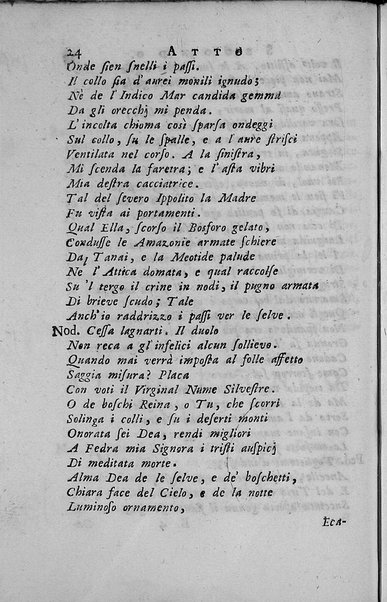 24 ATTO
Onde ſien ſnelli i paſſi.
Il collo ſia d'aurei monili ignudo;
Nè de l'Indico Mar candida gemma
Da gli orecchj mi penda.
L'incolta chioma così ſparſa ondeggi
Sul collo, ſu le ſpalle, e a l'aure ſtriſci
Ventilata nel corſo. A la ſiniſtra,
Mi ſcenda la faretra; e l'aſta vibri
Mia deſtra cacciatrice.
Tal del ſevero Ippolito la Madre
Fu viſta ai portamenti.
Qual Ella, ſcorſo il Bosforo gelato,
Conduſſe le Amazonie armate ſchiere
Da, Tanai, e la Meotide palude
Ne l'Attica domata, e qual raccolſe
Su 'l tergo il crine in nodi, il pugno armata
Di brieve ſcudo; Tale
Anch'io raddrizzo i paſſi ver le ſelve.
Nod. Ceſſa lagnarti. Il duolo
Non reca a gl'infelici alcun ſollievo.
Quando mai verrà impoſta al folle affetto
Saggia miſura? Placa
Con voti il Virginal Nume Silveſtre.
O de boſchi Reina, o Tu, che ſcorri
Solinga i colli, e ſu i deſerti monti
Onorata ſei Dea, rendi migliori
A Fedra mia Signora i triſti auſpicj
Di meditata morte.
Alma Dea de le ſelve, e de' boſchetti,
Chiara face del Cielo, e de la notte
Luminoſo ornamento,
Eca-